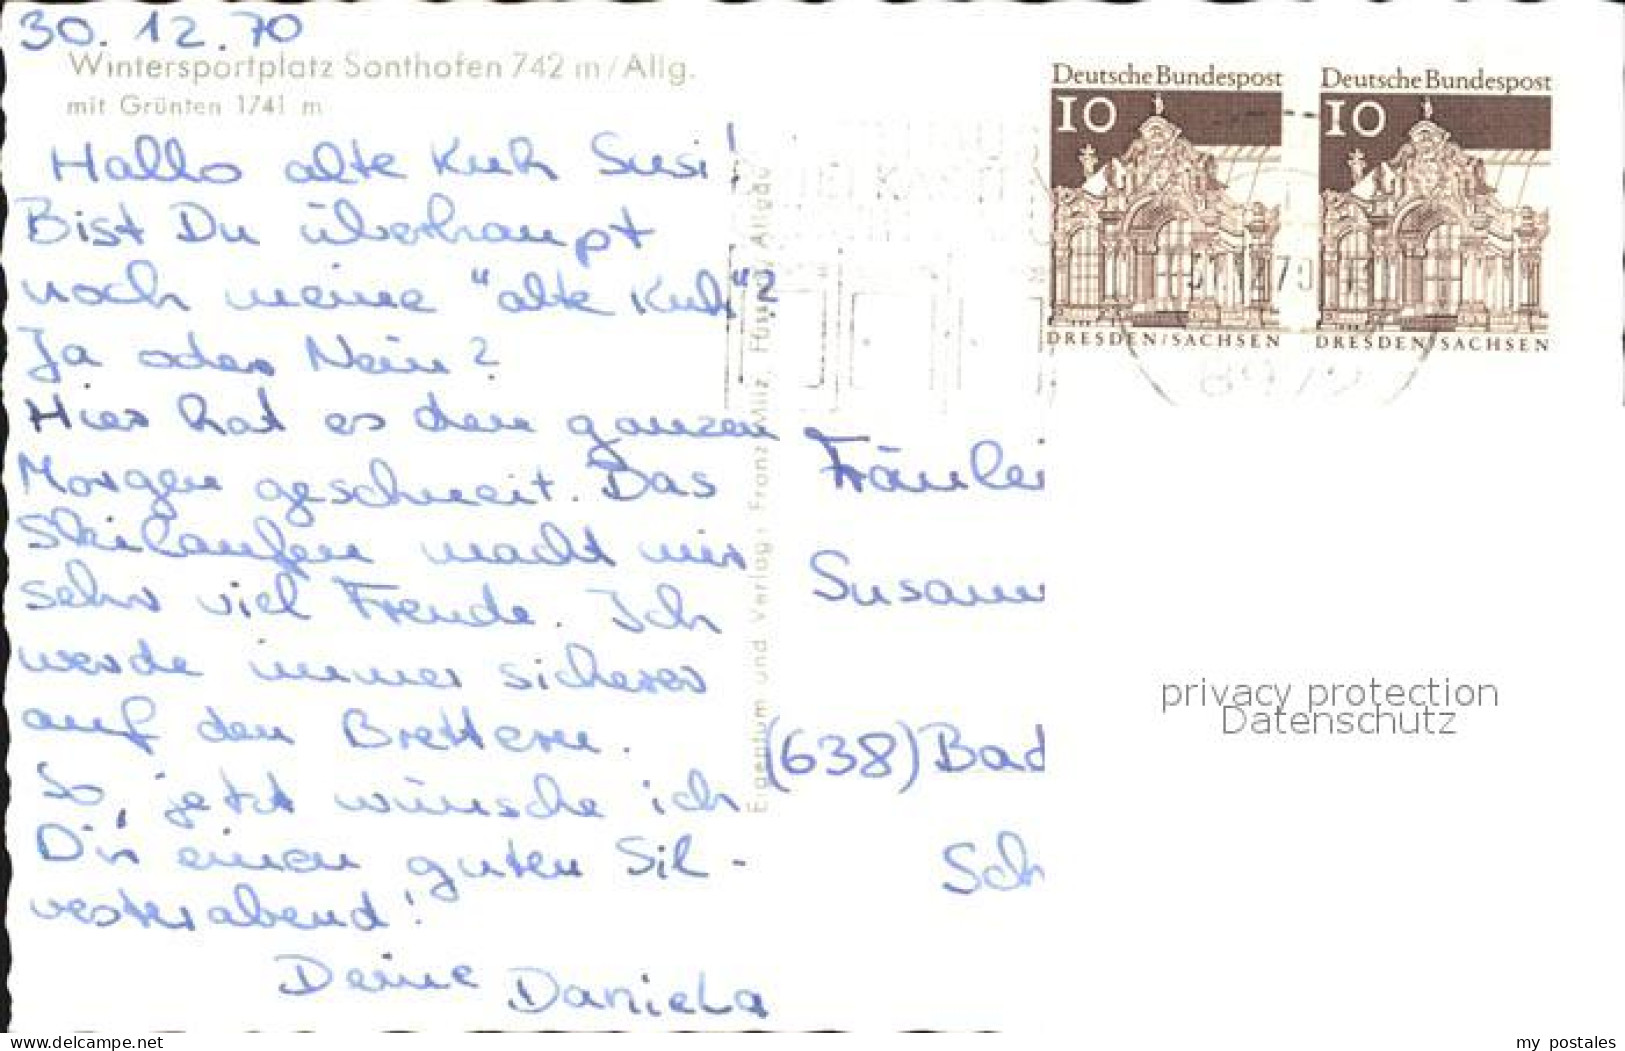 30.12.70
Wintersportplatz Sonthofen 742 m/Allg.
mit Grünten 1741 m
Hallo alte Kuh Susi!
Bist Du überhaupt
noch meine "alte Kuh"?
Ja oder Nein?
Hier hat es den ganzen
Morgen geschneit. Das
Skilaufen macht mir
sehr viel Freude. Ich
werde immer sicherer
auf den Brettern.
So, jetzt wünsche ich
Dir einen guten Sil-
vesterabend!
Deine Daniela
Eigentum und Verlag: Franz Milz, Füssen/Allgäu
Deutsche Bundespost
10
DRESDEN/SACHSEN
Deutsche Bundespost
10
DRESDEN/SACHSEN
Fräulei
Susann
(638) Bad
Sch
privacy protection
Datenschutz
www.delcampe.net
my_postales